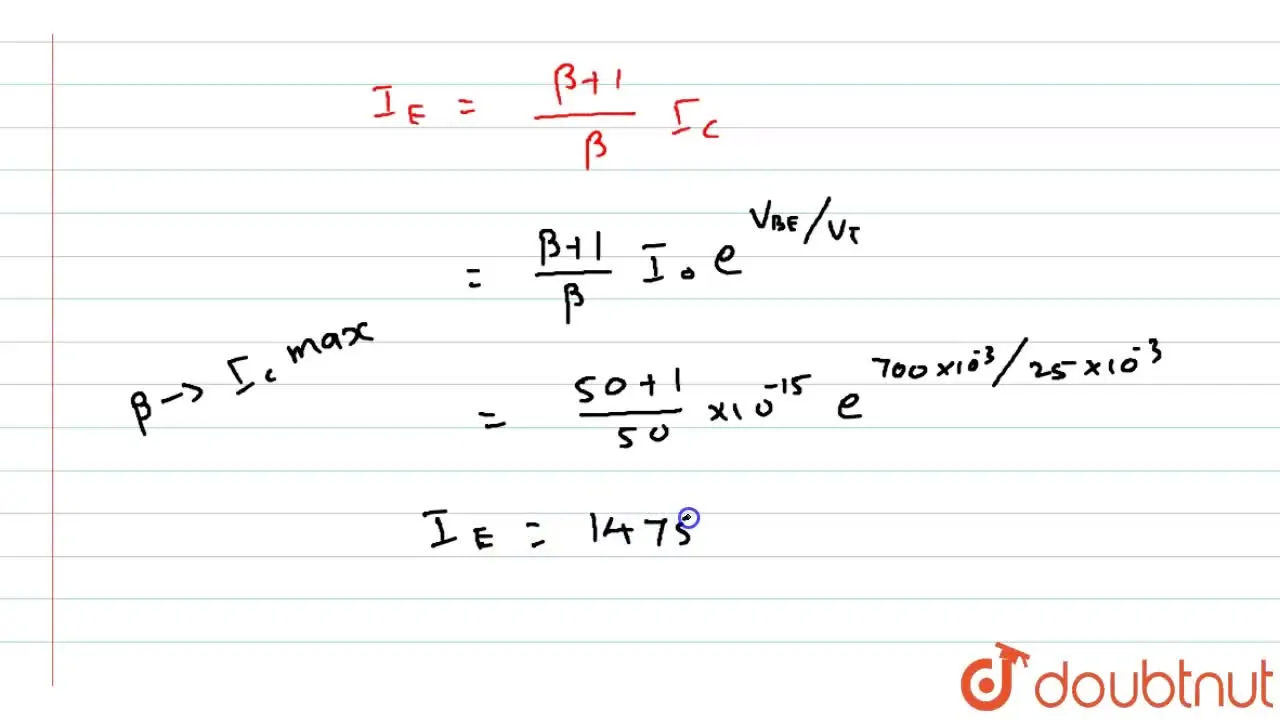 I_E = (β+1)/β I_C
= (β+1)/β I₀ e^(V_BE/V_T)
β → I_C max
= (50+1)/50 ×10^-15 e^(700×10^-3/25×10^-3)
I_E = 1475
doubtnut